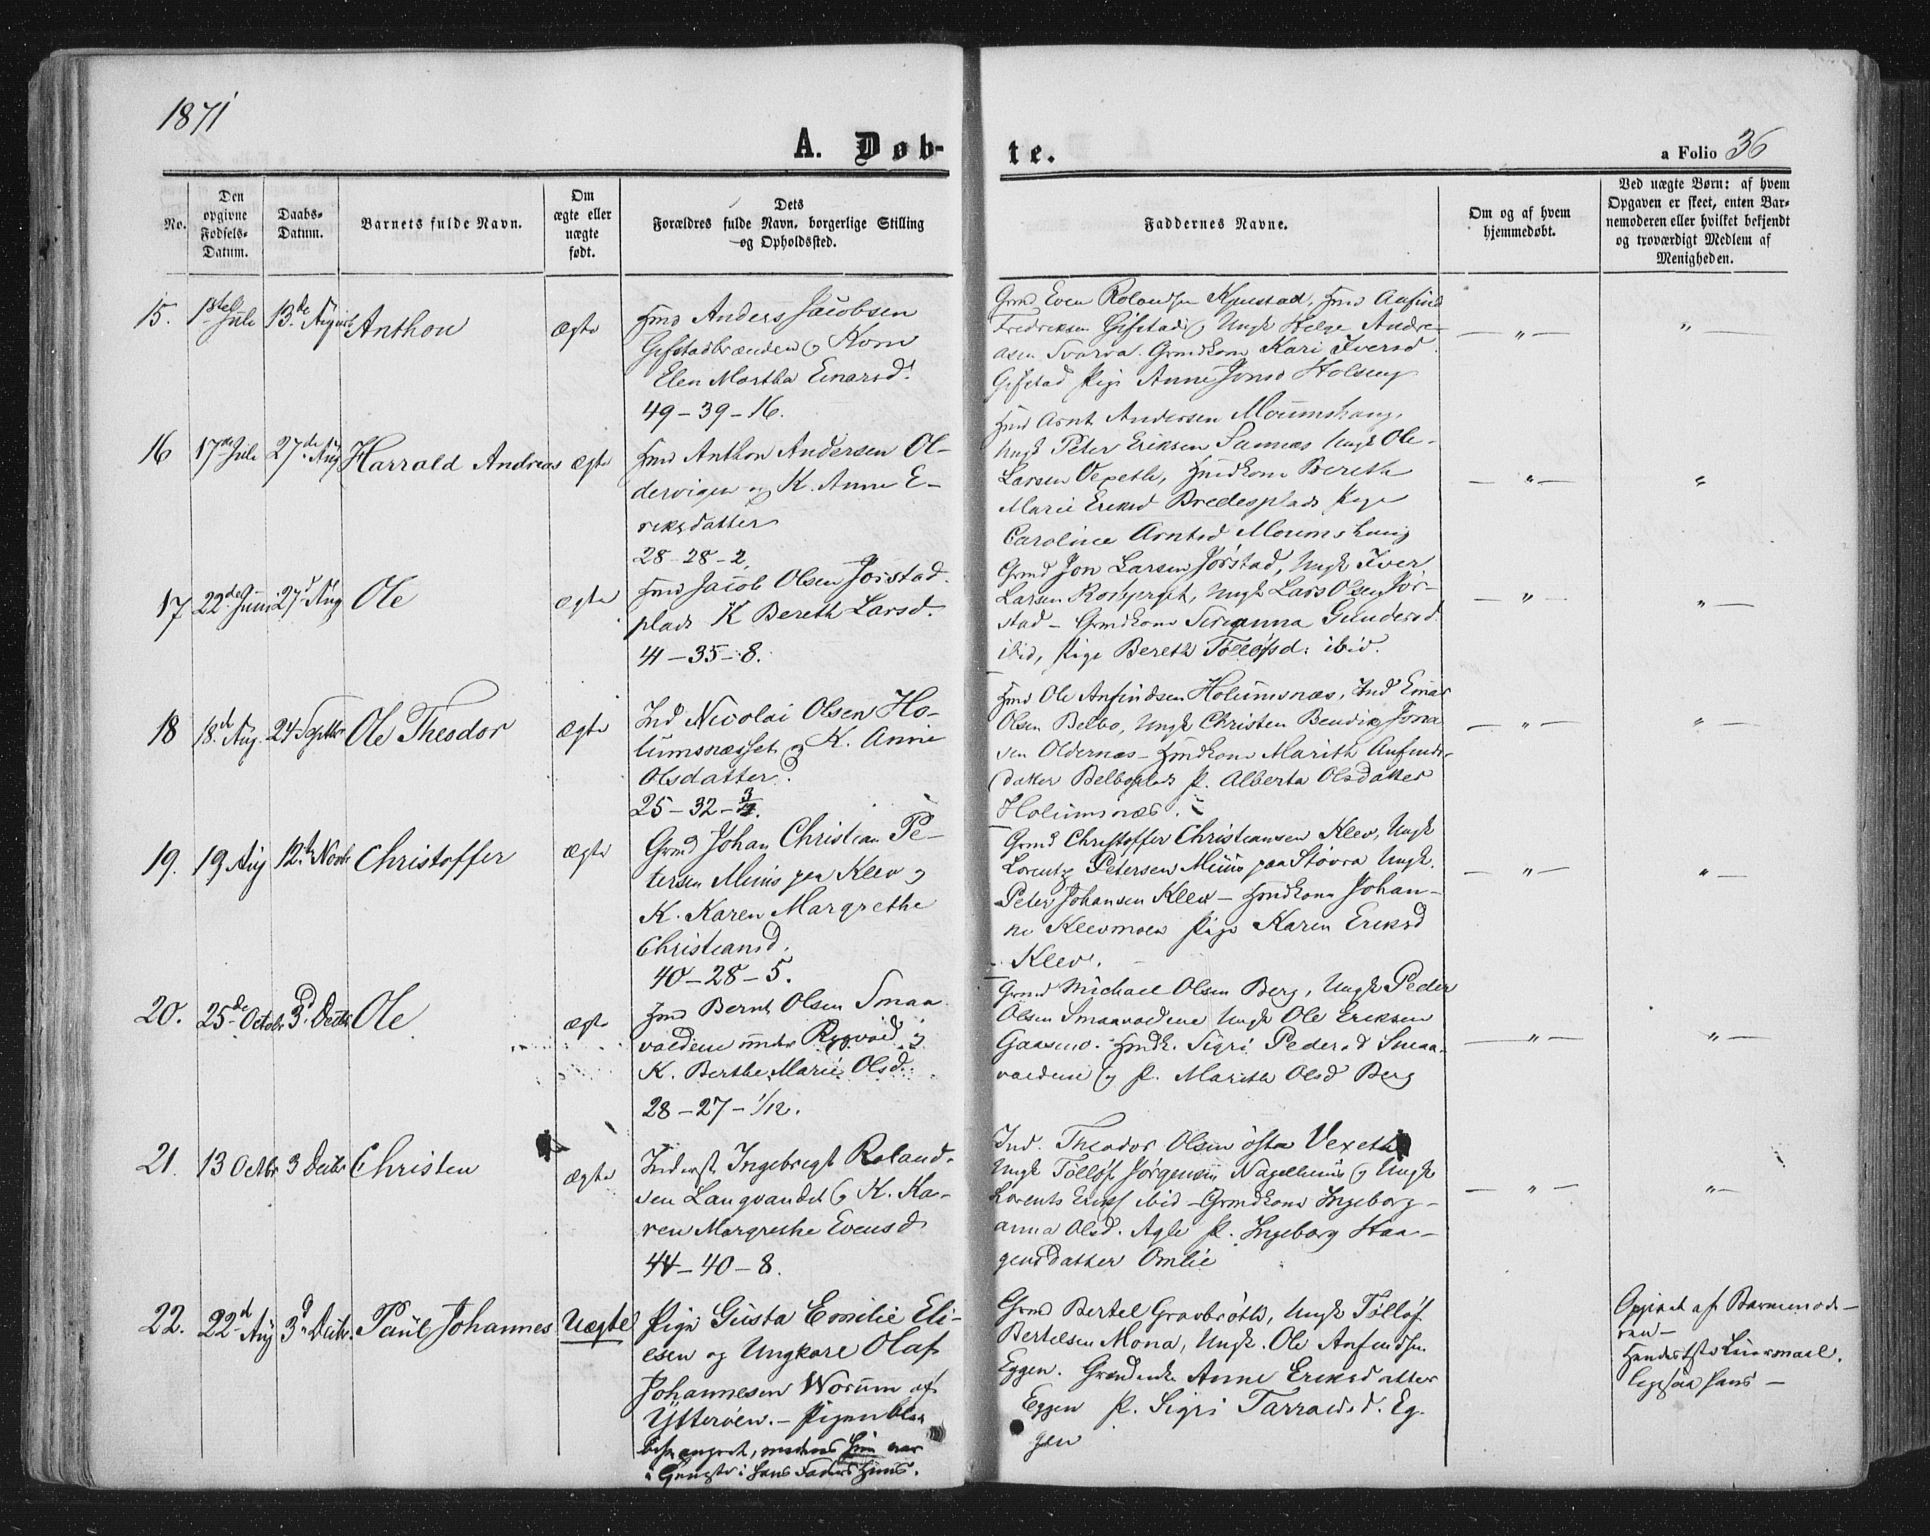 1871
A. Døb-
te.
a Folio 36
No.
Den opgivne Fødsels-Datum.
Daabs-Datum.
Barnets fulde Navn.
Om ægte eller uægte født.
Dets Forældres fulde Navn, borgerlige Stilling og Opholdssted.
Faddernes Navne.
Om og af hvem hjemmedøbt.
Ved uægte Børn: af hvem Opgaven er skeet, enten Barnemoderen eller hvilket bekjendt og troværdigt Medlem af Menigheden.
15. Juli 13de August Anthon ægte
Hmd Anders Jacobsen
Gifstadbrænden og Kone
Elen Martha Einarsd.
49 - 39 - 16.
Grmd Even Rolandsen Hmd Anfind
Fredriksen Gifstad og Ungk Helge Andre-
asen Svarva. Grmdkone Kari Iversd
Gifstad Pige Anne Jonsd Holseng
— „ — „ —
16 17de Juli 27de Aug Harrald Andreas ægte
Hmd Anthon Andersen Ol-
dervigen og K. Anne E-
riksdatter
28 - 28 - 2.
Hmd Arnt Andersen Moumshaug,
Ungk Peter Eriksen Sannes Ungk Ole
Larsen Vexeth, Hmdkone Bereth
Marie Eriksd Bredesplads Pige
Caroline Arntsd Moumshaug
— „ — „
17 22de Juni 27d Aug Ole ægte
Hmd Jacob Olsen Jørstad
plads K Bereth Larsd.
41 - 35 - 8.
Grmd Jon Larsen Jørstad, Ungk Iver
Larsen Ungk Lars Olsen Jør-
stad - Grmdkone Gundersd
ibid, Pige Bereth Tølløfsd: ibid.
— „ — „ —
18 18de Aug. 24 Septbr Ole Theodor ægte
Ind Nicolai Olsen Ho-
lumsnæsset og K. Anne
Olsdatter.
25 - 32 - 3/4.
Hmd Ole Anfindsen Holumsnæs, Ind Einar
Olsen Belbo, Ungk Christen Bendix Jona
sen Oldernæs - Hmdkone Marith Anfinds-
datter Belboplads P. Alberta Olsdatter
Holumsnæs.
— „ — „ —
19. 19 Aug 12te Novbr Christoffer ægte
Grmd Johan Christian Pe-
tersen Mluus paa Klev og
K. Karen Margrethe
Christiansd.
40 - 28 - 5.
Grmd Christoffer Christiansen Klev, Ungk
Lorentz Petersen paa Støvra Ungk.
Peter Johansen Klev - Hmdkone Johan-
ne Klevmoen Pige Karen Eriksd
Klev.
— „ — „ —
20. 25de Octobr 3d Decbr Ole ægte
Hmd Bernt Olsen Smaa
vardene under og
K. Berthe Marie Olsd.
28 - 27 - 1/12.
Grmd Michael Olsen Berg, Ungk Peder
Olsen Smaavardene Ungk Ole Eriksen
Gaasmo. Hmdk. Sigri Pedersd Smaa-
vardene og P. Marith Olsd Berg
— „ — „ —
21. 13 Octbr 3 Decbr Christen ægte
Inderst Ingebrigt Roland-
sen Langvandet og K. Ka-
ren Margrethe Evensd
44 - 40 - 8.
Ind. Theodor Olsen østa Vexeth
Ungk Tølløf Jørgensen og Ungk
Lorents Eriks ibid - Grmdkone Ingeborg-
anna Olsd. Agle P. Ingeborg Haa-
gensdatter Omlie
— „ — „ —
22. 22d Aug 3d Decbr. Paul Johannes Uægte
Pige Gusta Emilie Eli-
esen og Ungkarl Olaf
Johannesen Worum af
Ytterøen. - Pigen blev
besvangret, medens hun var
i Tjeneste i hans Faders Huus.
Grmd Bertel Gravbrøth, Ungk Tølløf
Bertelsen Mona, Ungk. Ole Anfindsen
Eggen. Anne Eriksdatter
Eggen P. Sigri Tarraldsd. Eg-
gen
Opgivet af Barnemode-
ren -
Hendes 1ste Leiermaal.
ligesaa hans -